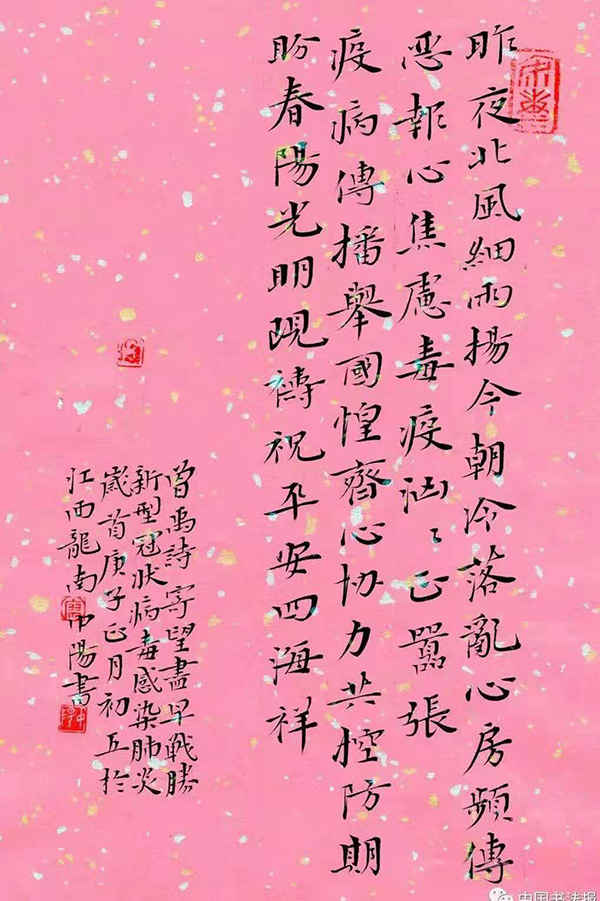 昨夜北风細雨揚今朝冷落亂心房頻傳
恶報心焦慮毒疫汹〻正囂張
疫病傳播舉國惶齊心协力共控防期
盼春陽光明現禱祝平安四海祥
曾禹詩寄望盡早戰勝
新型冠狀病毒感染肺炎
嵗首庚子正月初五於
江西龍南中陽書
中国书法报